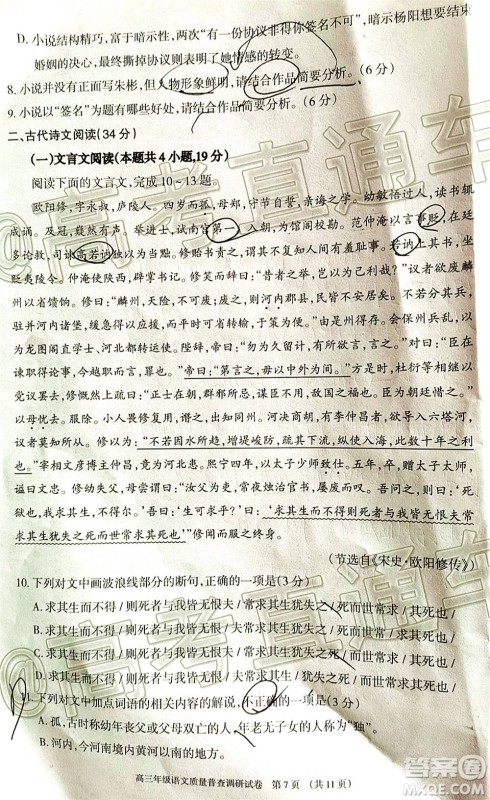 D. 小说结构精巧,富于戏剧性,两次“有一份协议非得你签名不可”,暗示杨阳想要结束
婚姻的决心,最终撕掉协议又照应了她情感的转变。
8. 小说并没有正面写朱彬,但人物形象鲜明,请结合作品简要分析。(6 分)
9. 小说以“签名”为题有哪些好处,请结合作品简要分析。(6 分)
二、古代诗文阅读(34 分)
(一)文言文阅读(本题共 4 小题,19 分)
阅读下面的文言文,完成 10~13 题。
欧阳修,字永叔,庐陵人。四岁而孤,母郑,守节自誓,亲诲之学。幼敏悟过人,读书辄
成诵。及冠,嶷然有声。举进士,试南宫第一,入朝,为馆阁校勘。范仲淹以言事贬,在廷
多论救,司谏高若讷独以为当黜。修贻书责之,谓其不复知人间有羞耻事。若讷上其书,坐
贬夷陵令。仲淹使陕西,辟掌书记。修笑而辞曰:“昔者之举,岂以为己利哉?”议者欲废麟州,
以省馈饷。修曰:“麟州,天险,不可废;废之,则
驻并河诸堡,缓急得以应援,而平时可省转输,于策为便。”由是州得存。会保州兵乱,以
为龙图阁直学士、河北都转运使。陛辞,帝曰:“勿为久留计,有所欲言,言之。”对曰:“臣在
谏职得论事,今越职而言,罪也。”帝曰:“第言之,毋以中外为间。”杜衍等相继以
党议罢去,修慨然上疏曰:“正士在朝,群邪所忌,谋臣不用,敌国之福也。臣为朝廷惜之。”
以母忧去。服除。
议者莫知所从。修以为:“不若因水所趋,增堤峻防,疏其下流,纵使入海,此数十年之利
也。”宰相文彦博主仲昌,竟为河北患。熙宁四年,以太子少师致仕。五年,卒,赠太子太师,
谥曰文忠。修幼失父,母尝谓曰:“汝父为吏,常夜烛治官书,屡废而叹。吾问之,则曰:‘死
狱也,我求其生,不得尔。’吾曰:‘生可求乎?’曰:‘求其生而不得则死者与我皆无恨夫常
求其生犹失之死而世常求其死也。’”修闻而服之终身。
(节选自《宋史·欧阳修传》)
10. 下列对文中画波浪线部分的断句,正确的一项是(3 分)
A. 求其生而不得/则死者与我皆无恨/夫常求其生犹失之/死而世常求/其死也/
B. 求其生而不得/则死者与我皆无恨夫/常求其生犹失之/死而世常求/其死也/
C. 求其生而不得/则死者与我皆无恨/夫常求其生/犹失之死/而世常求其死也/
D. 求其生而不得/则死者与我皆无恨夫/常求其生/犹失之死/而世常求其死也/
11. 下列对文中加点词语的相关内容的解说,不正确的一项是(3 分)
A. 孤,古时候称幼年丧父或父母双亡的人,年老无子女的人称为“独”。
B. 河内,古代指中原境内黄河以南的地方。
高三年级语文质量普查调研试卷 第 7 页 (共 11 页)
@高考直通车
@高考直通车